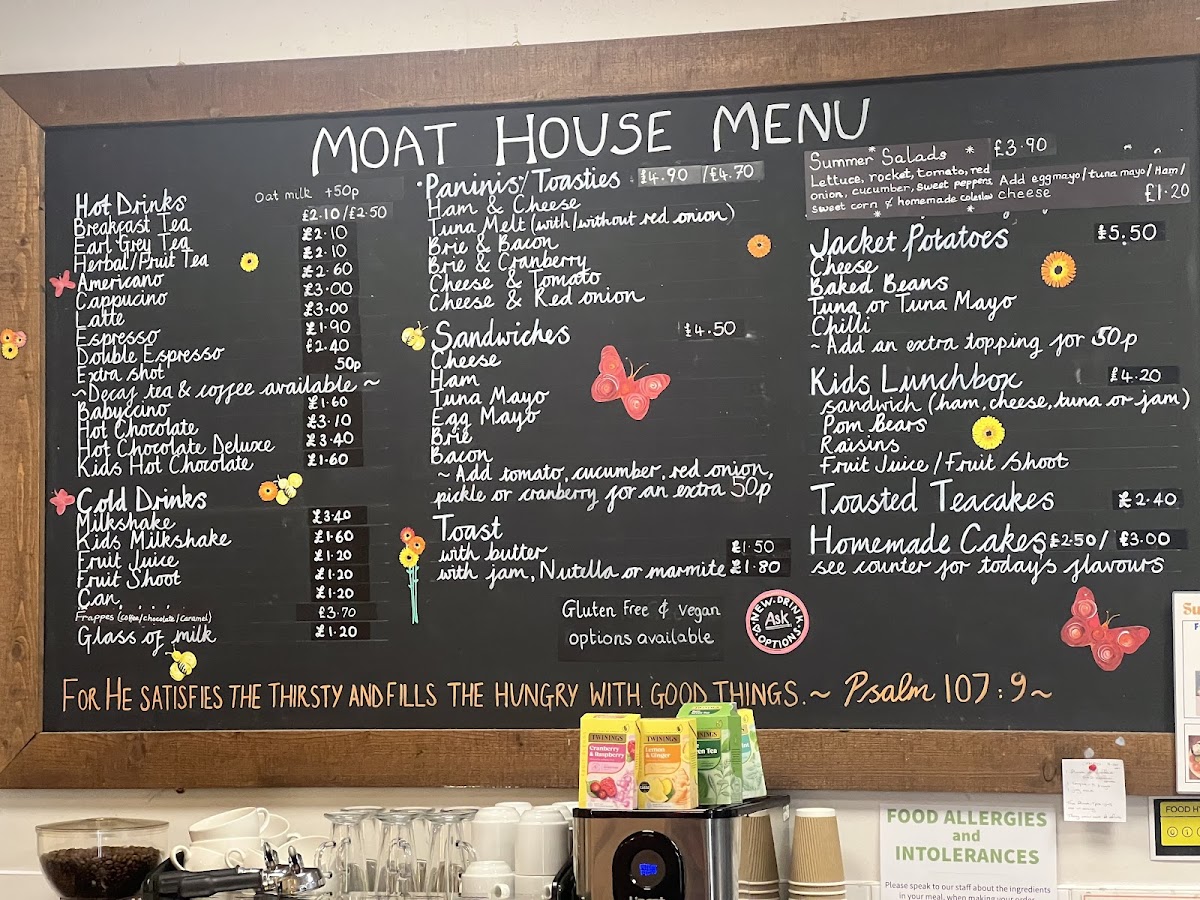 MOAT HOUSE MENU
Hot Drinks Oat milk +50p
Breakfast Tea £2.10/£2.50
Earl Grey Tea £2.10
Herbal/Fruit Tea £2.10
Americano £2.60
Cappucino £3.00
Latte £3.00
Espresso £1.90
Double Espresso £2.40
Extra shot 50p
~Decaf tea & coffee available ~
Babyccino £1.60
Hot Chocolate £3.10
Hot Chocolate Deluxe £3.40
Kids Hot Chocolate £1.60
Cold Drinks
Milkshake £3.40
Kids Milkshake £1.60
Fruit Juice £1.20
Fruit Shoot £1.20
Can £1.20
Frappes (Coffee/chocolate/Caramel) £3.70
Glass of milk £1.20
Paninis/Toasties £4.90 /£4.70
Ham & Cheese
Tuna Melt (with/without red onion)
Brie & Bacon
Brie & Cranberry
Cheese & Tomato
Cheese & Red onion
Sandwiches £4.50
Cheese
Ham
Tuna Mayo
Egg Mayo
Brie
Bacon
~ Add tomato, cucumber, red onion,
pickle or cranberry for an extra 50p
Toast
with butter £1.50
with jam, Nutella or marmite £1.80
Gluten Free & vegan
options available
NEW DRINK OPTIONS
Ask
* Summer Salads * £3.90
Lettuce, rocket, tomato, red
onion, cucumber, sweet peppers,
sweet corn & homemade coleslaw
Add eggmayo/tuna mayo/Ham/
cheese £1.20
Jacket Potatoes £5.50
Cheese
Baked Beans
Tuna or Tuna Mayo
Chilli
~ Add an extra topping for 50p
Kids Lunchbox £4.20
sandwich (ham, cheese, tuna or jam)
Pom bears
Raisins
Fruit Juice / Fruit Shoot
Toasted Teacakes £2.40
Homemade Cakes £2.50/ £3.00
see counter for today's flavours
FOR HE SATISFIES THE THIRSTY AND FILLS THE HUNGRY WITH GOOD THINGS. ~ Psalm 107:9 ~
TWININGS
Cranberry
& Raspberry
TWININGS
Lemon
& Ginger
FOOD ALLERGIES
and
INTOLERANCES
Please speak to our staff about the ingredients
in your meal, when making your order